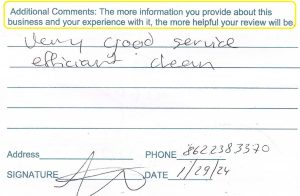 Additional Comments: The more information you provide about this
business and your experience with it, the more helpful your review will be.
Very good service
efficiant clean
Address PHONE 8622383370
SIGNATURE DATE 1/29/24